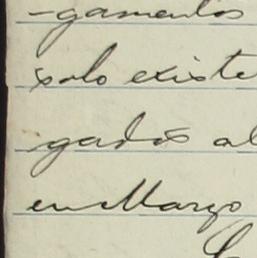 -gamentos
solo existe
gados al
en Marzo